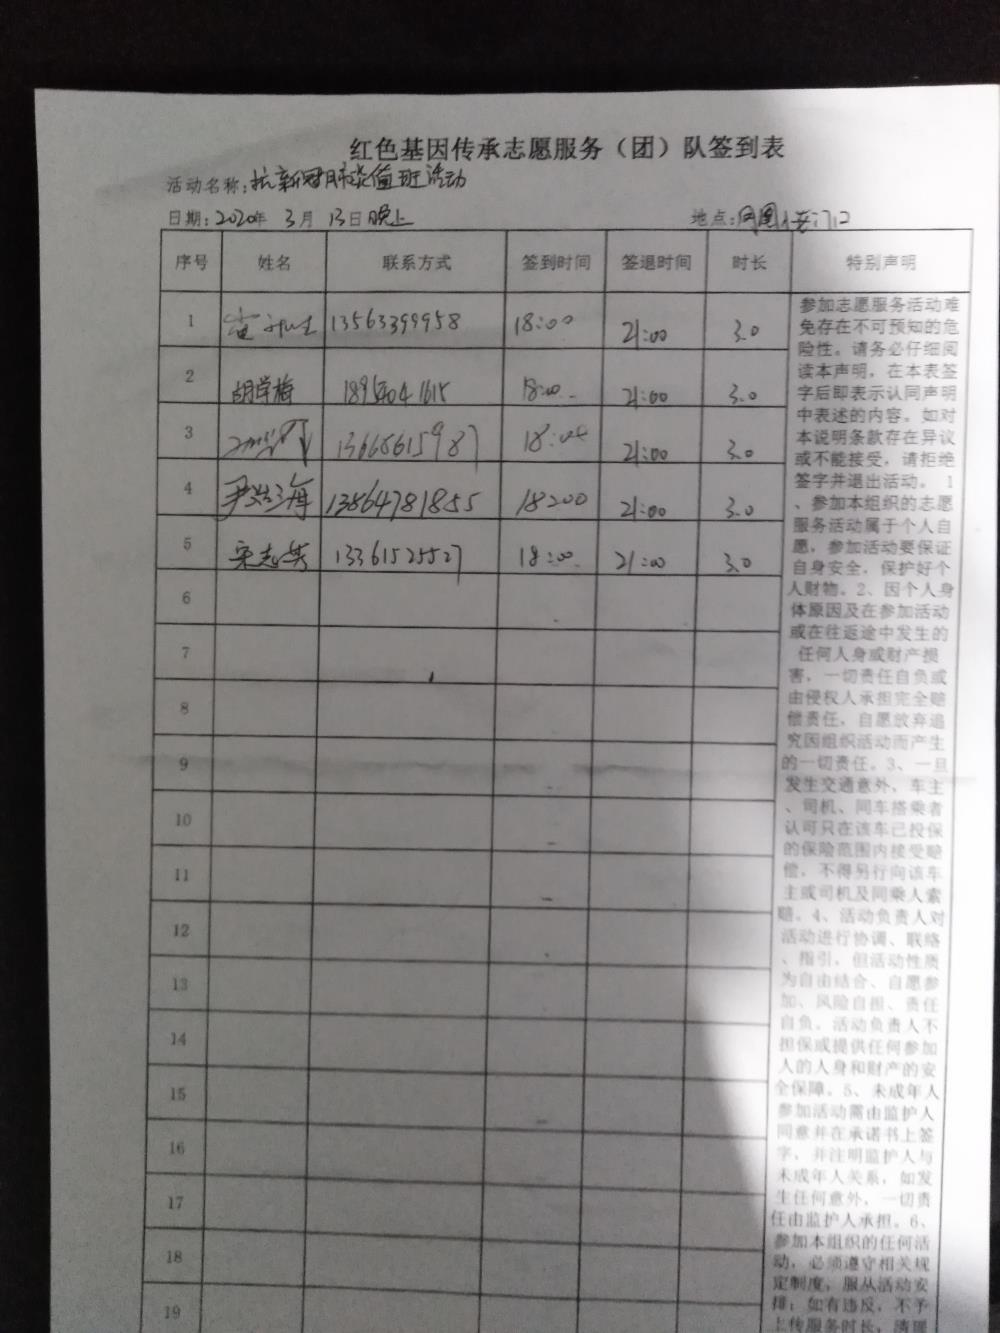 红色基因传承志愿服务（团）队签到表
活动名称：抗新冠肺炎值班活动
日期：2020年 3月 13日晚上 地点：
序号 姓名 联系方式 签到时间 签退时间 时长 特别声明
1 13563399958 18:00 21:00 3.0
2 胡学梅 18954041615 18:00 21:00 3.0
3 13668615987 18:00 21:00 3.0
4 尹 海 13864781855 18:00 21:00 3.0
5 宋志英 13361525527 18:00 21:00 3.0
6
7
8
9
10
11
12
13
14
15
16
17
18
19
参加志愿服务活动难
免存在不可预知的危
险性。请务必仔细阅
读本声明，在本表签
字后即表示认同声明
中表述的内容。如对
本说明条款存在异议
或不能接受，请拒绝
签字并退出活动。 1
、参加本组织的志愿
服务活动属于个人自
愿，参加活动要保证
自身安全，保护好个
人财物。2、因个人身
体原因及在参加活动
或在往返途中发生的
任何人身或财产损
害，一切责任自负或
由侵权人承担完全赔
偿责任，自愿放弃追
究因组织活动而产生
的一切责任。3、一旦
发生交通意外，车主
、司机、同车搭乘者
认可只在该车已投保
的保险范围内接受赔
偿，不得另行向该车
主或司机及同乘人索
赔。4、活动负责人对
活动进行协调、联络
、指引，但活动性质
为自由结合、自愿参
加、风险自担、责任
自负。活动负责人不
担保或提供任何参加
人的人身和财产的安
全保障。5、未成年人
参加活动需由监护人
同意并在承诺书上签
字，并注明监护人与
未成年人关系，如发
生任何意外，一切责
任由监护人承担。6、
参加本组织的任何活
动，必须遵守相关规
定制度，服从活动安
排；如有违反，不予
上传服务时长，清理